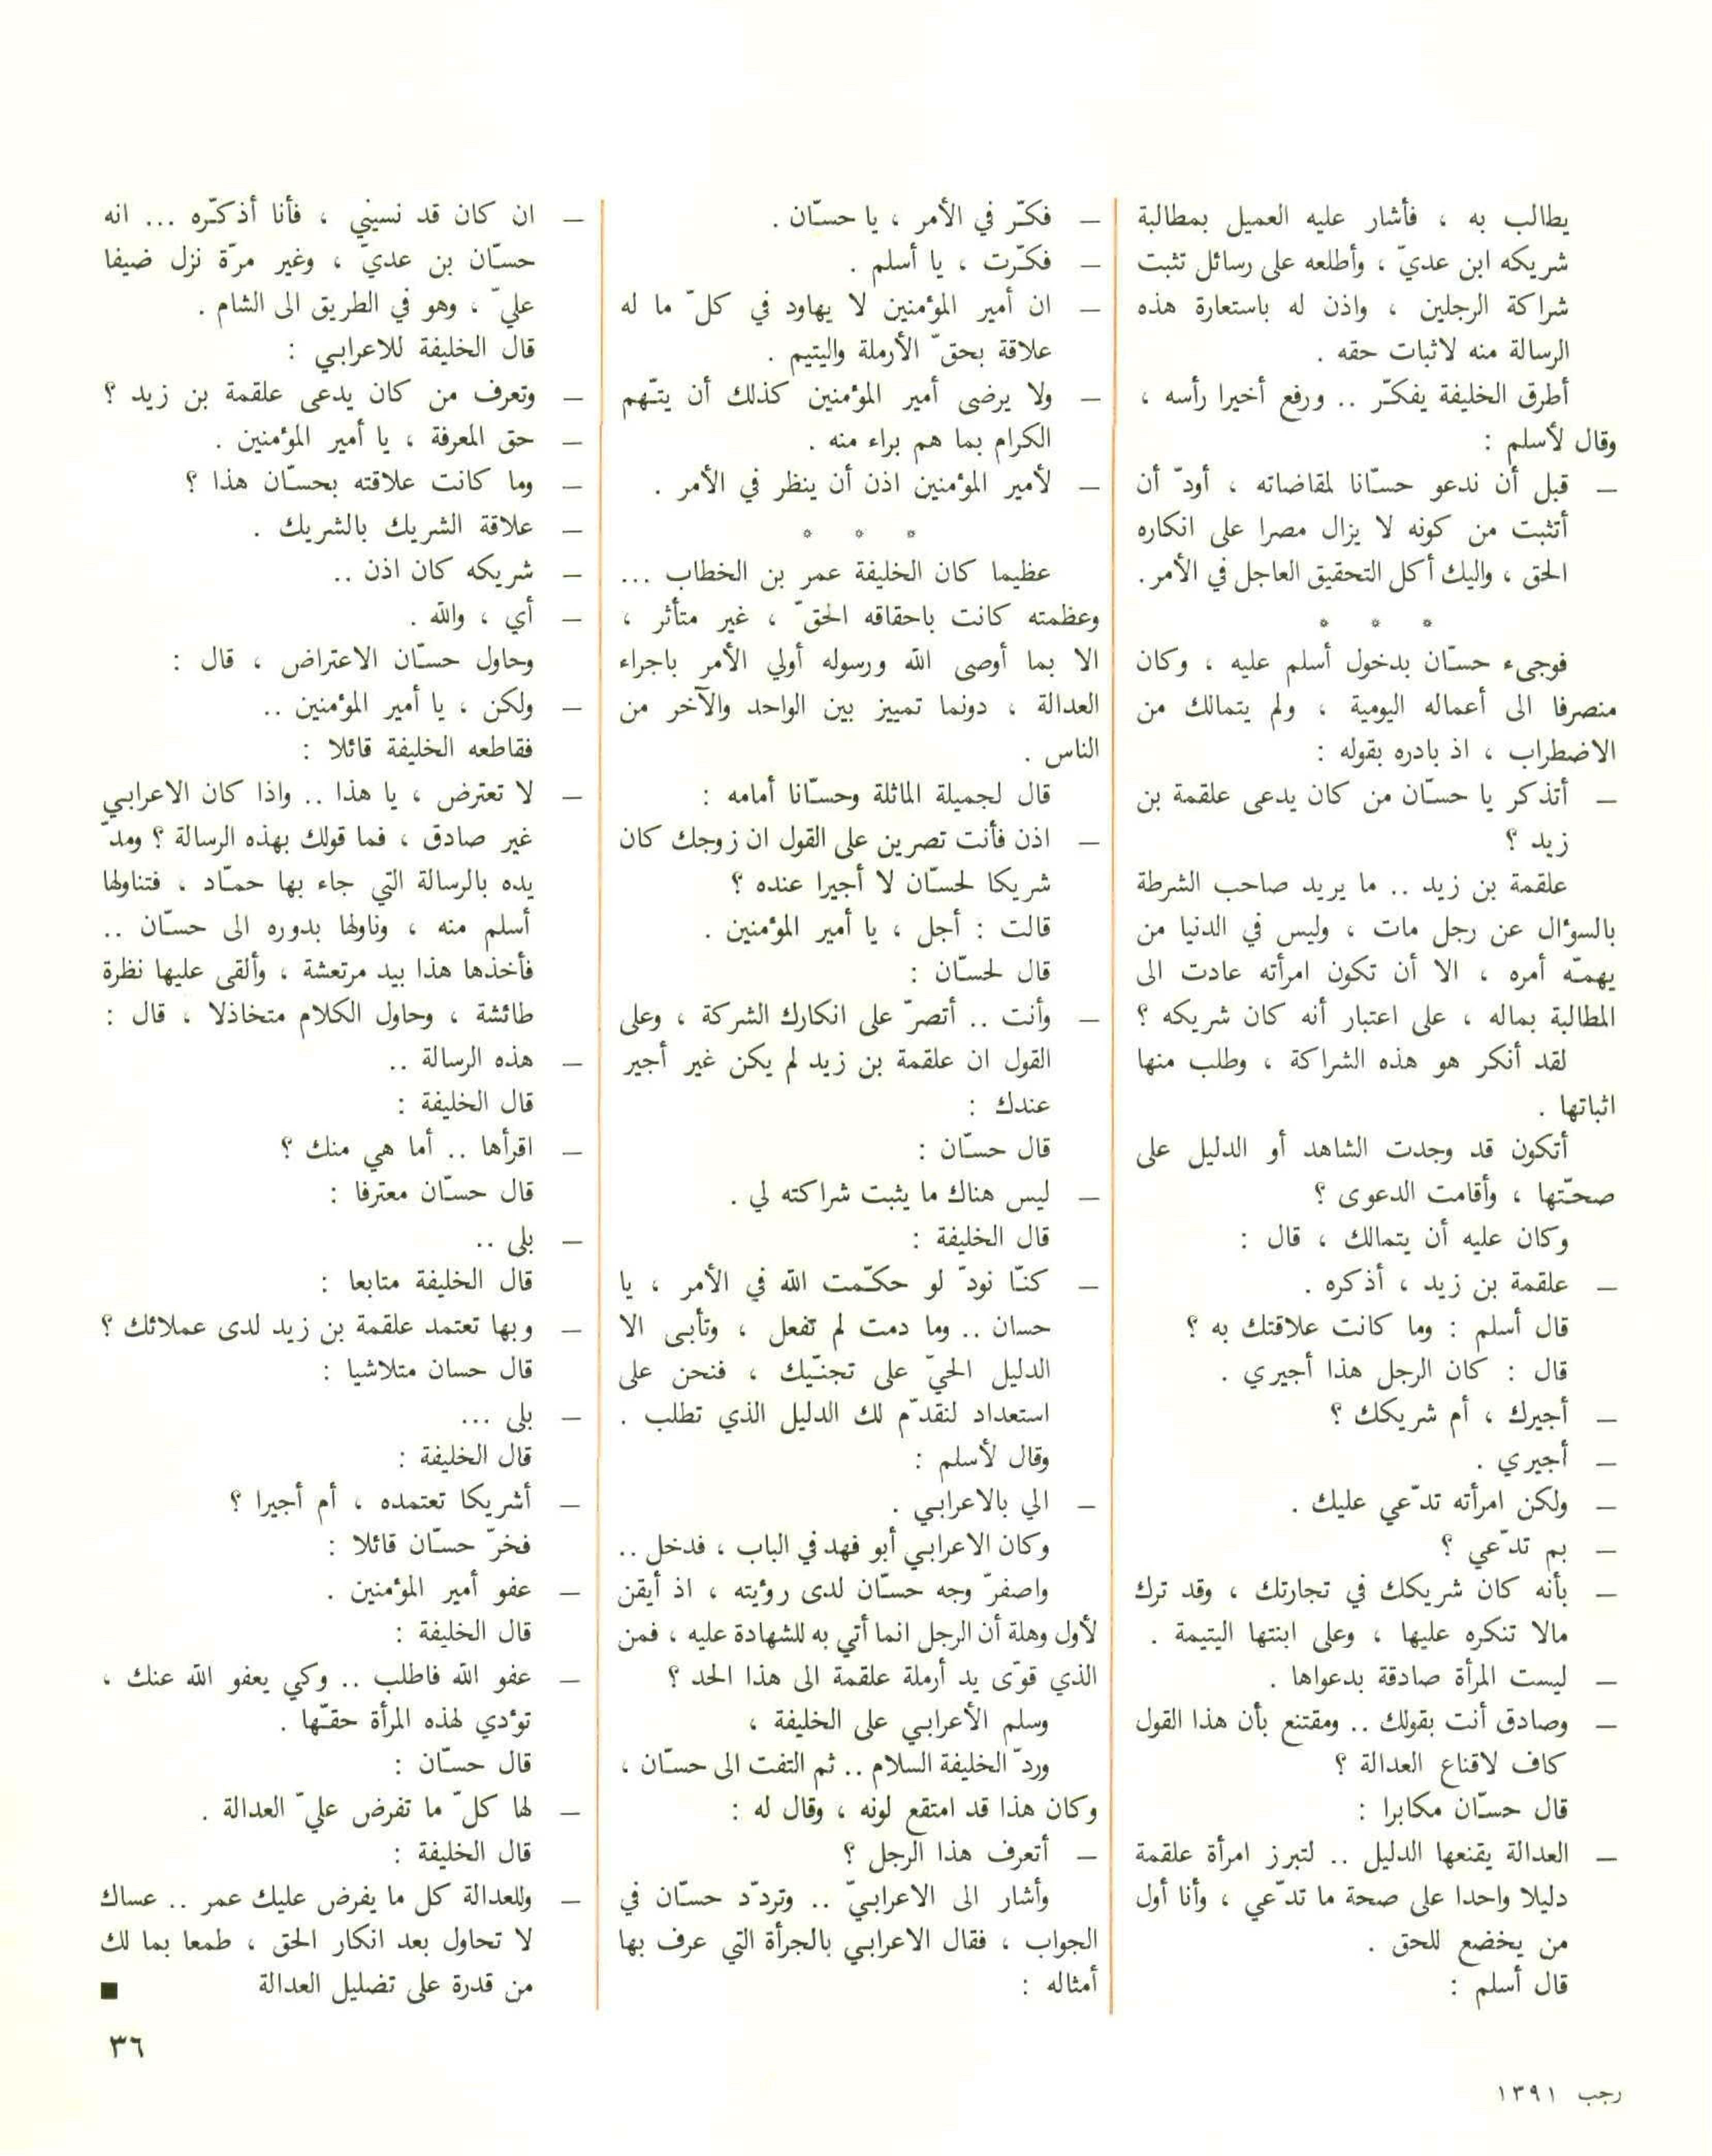 يطالب به ، فأشار عليه العميل بمطالبة
شريكه ابن عديّ ، وأطلعه على رسائل تثبت
شراكة الرجلين ، واذن له باستعارة هذه
الرسالة منه لاثبات حقه .
أطرق الخليفة يفكّر .. ورفع أخيرا رأسه ،
وقال لأسلم :
— قبل أن ندعو حسّانا لمقاضاته ، أودّ أن
أتثبت من كونه لا يزال مصرا على انكاره
الحق ، واليك أكل التحقيق العاجل في الأمر .
* * *
فوجىء حسّان بدخول أسلم عليه ، وكان
منصرفا الى أعماله اليومية ، ولم يتمالك من
الاضطراب ، اذ بادره بقوله :
— أتذكر يا حسّان من كان يدعى علقمة بن
زيد ؟
علقمة بن زيد .. ما يريد صاحب الشرطة
بالسؤال عن رجل مات ، وليس في الدنيا من
يهمّه أمره ، الا أن تكون امرأته عادت الى
المطالبة بماله ، على اعتبار أنه كان شريكه ؟
لقد أنكر هو هذه الشراكة ، وطلب منها
اثباتها .
أتكون قد وجدت الشاهد أو الدليل على
صحّتها ، وأقامت الدعوى ؟
وكان عليه أن يتمالك ، قال :
— علقمة بن زيد ، أذكره .
قال أسلم : وما كانت علاقتك به ؟
قال : كان الرجل هذا أجيري .
— أجيرك ، أم شريكك ؟
— أجيري .
— ولكن امرأته تدّعي عليك .
— بم تدّعي ؟
— بأنه كان شريكك في تجارتك ، وقد ترك
مالا تنكره عليها ، وعلى ابنتها اليتيمة .
— ليست المرأة صادقة بدعواها .
— وصادق أنت بقولك .. ومقتنع بأن هذا القول
كاف لاقناع العدالة ؟
قال حسّان مكابرا :
— العدالة يقنعها الدليل .. لتبرز امرأة علقمة
دليلا واحدا على صحة ما تدّعي ، وأنا أول
من يخضع للحق .
قال أسلم :
— فكّر في الأمر ، يا حسّان .
— فكّرت ، يا أسلم .
— ان أمير المؤمنين لا يهاود في كلّ ما له
علاقة بحقّ الأرملة واليتيم .
— ولا يرضى أمير المؤمنين كذلك أن يتّهم
الكرام بما هم براء منه .
— لأمير المؤمنين اذن أن ينظر في الأمر .
* * *
عظيما كان الخليفة عمر بن الخطاب ...
وعظمته كانت باحقاقه الحقّ ، غير متأثر ،
الا بما أوصى الله ورسوله أولي الأمر باجراء
العدالة ، دونما تمييز بين الواحد والآخر من
الناس .
قال لجميلة الماثلة وحسّانا أمامه :
— اذن فأنت تصرين على القول ان زوجك كان
شريكا لحسّان لا أجيرا عنده ؟
قالت : أجل ، يا أمير المؤمنين .
قال لحسّان :
— وأنت .. أتصرّ على انكارك الشركة ، وعلى
القول ان علقمة بن زيد لم يكن غير أجير
عندك :
قال حسّان :
— ليس هناك ما يثبت شراكته لي .
قال الخليفة :
— كنّا نودّ لو حكّمت الله في الأمر ، يا
حسان .. وما دمت لم تفعل ، وتأبى الا
الدليل الحيّ على تجنّيك ، فنحن على
استعداد لنقدّم لك الدليل الذي تطلب .
وقال لأسلم :
— الي بالاعرابي .
وكان الاعرابي أبو فهد في الباب ، فدخل ..
واصفرّ وجه حسّان لدى رؤيته ، اذ أيقن
لأول وهلة أن الرجل انما أتي به للشهادة عليه ، فمن
الذي قوّى يد أرملة علقمة الى هذا الحد ؟
وسلم الأعرابي على الخليفة ،
وردّ الخليفة السلام .. ثم التفت الى حسّان ،
وكان هذا قد امتقع لونه ، وقال له :
— أتعرف هذا الرجل ؟
وأشار الى الاعرابيّ .. وتردّد حسّان في
الجواب ، فقال الاعرابي بالجرأة التي عرف بها
أمثاله :
— ان كان قد نسيني ، فأنا أذكّره ... انه
حسّان بن عديّ ، وغير مرّة نزل ضيفا
عليّ ، وهو في الطريق الى الشام .
قال الخليفة للاعرابي :
— وتعرف من كان يدعى علقمة بن زيد ؟
— حق المعرفة ، يا أمير المؤمنين .
— وما كانت علاقته بحسّان هذا ؟
— علاقة الشريك بالشريك .
— شريكه كان اذن ..
— أي ، والله .
وحاول حسّان الاعتراض ، قال :
— ولكن ، يا أمير المؤمنين ..
فقاطعه الخليفة قائلا :
— لا تعترض ، يا هذا .. واذا كان الاعرابي
غير صادق ، فما قولك بهذه الرسالة ؟ ومدّ
يده بالرسالة التي جاء بها حمّاد ، فتناولها
أسلم منه ، وناولها بدوره الى حسّان ..
فأخذها هذا بيد مرتعشة ، وألقى عليها نظرة
طائشة ، وحاول الكلام متخاذلا ، قال :
— هذه الرسالة ..
قال الخليفة :
— اقرأها .. أما هي منك ؟
قال حسّان معترفا :
— بلى ..
قال الخليفة متابعا :
— وبها تعتمد علقمة بن زيد لدى عملائك ؟
قال حسان متلاشيا :
— بلى ...
قال الخليفة :
— أشريكا تعتمده ، أم أجيرا ؟
فخرّ حسّان قائلا :
— عفو أمير المؤمنين .
قال الخليفة :
— عفو الله فاطلب .. وكي يعفو الله عنك ،
تؤدي لهذه المرأة حقّها .
قال حسّان :
— لها كلّ ما تفرض عليّ العدالة .
قال الخليفة :
— وللعدالة كل ما يفرض عليك عمر .. عساك
لا تحاول بعد انكار الحق ، طمعا بما لك
من قدرة على تضليل العدالة ■
٣٦
رجب ١٣٩١